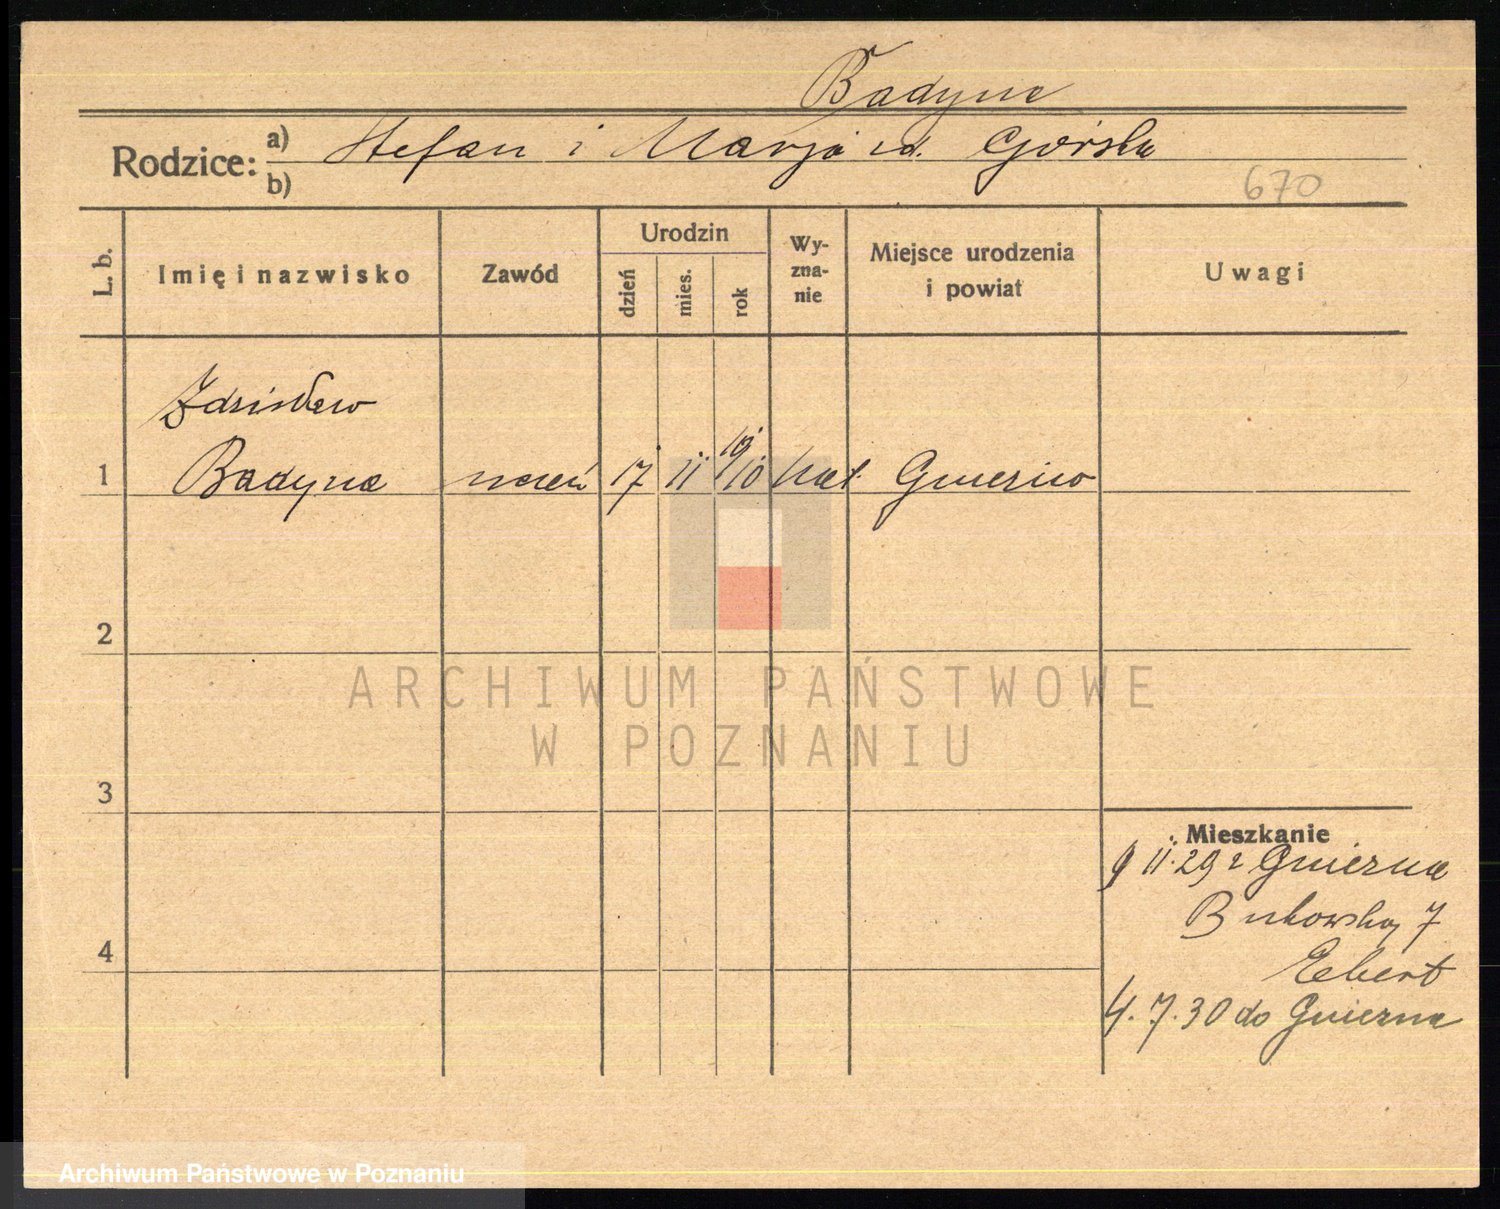 Badyna
Rodzice: a) Stefan i Marja ur. Górska
b)
670
L. b. Imię i nazwisko Zawód Urodzin dzień mies. rok Wy-zna-nie Miejsce urodzenia i powiat Uwagi
Zdzisław
1 Badyna uczeń 17 11 19/10 kat. Gniezno
2
3
4
Mieszkanie
9 11.29 z Gniezna
Bukowska 7
Ebert
4.7.30 do Gniezna
ARCHIWUM PAŃSTWOWE
W POZNANIU
Archiwum Państwowe w Poznaniu